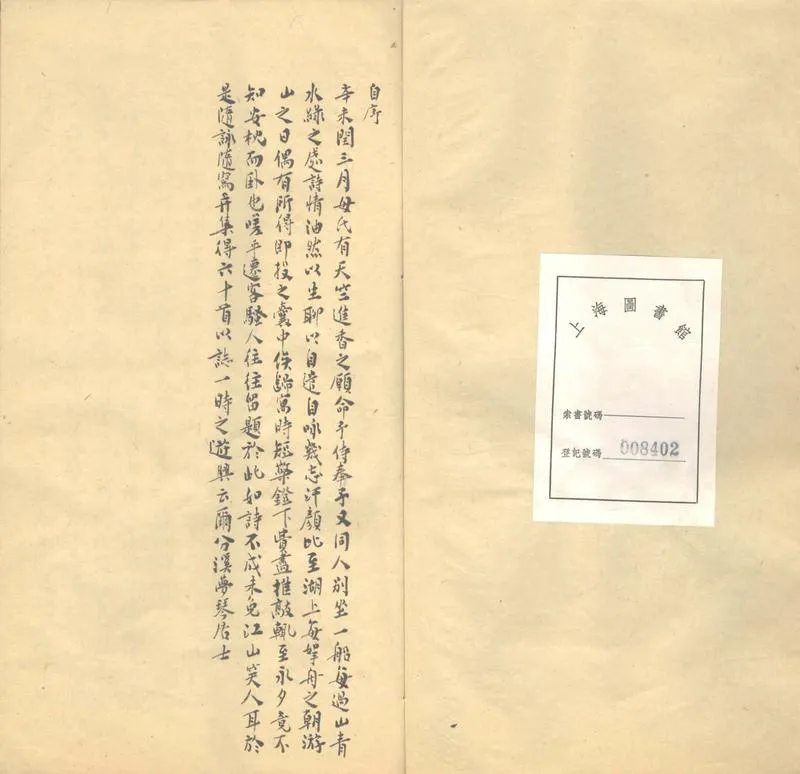 上海圖書館
索書號碼
登記號碼 008402
自序
辛未閏三月母氏有天竺進香之願命予侍奉予又同人別坐一船每過山青
水綠之處詩情油然以生聊以自遣自咏幾忘汗顏比至湖上每拏舟之朝游
山之日偶有所得即投之囊中俟歸寓時短檠鐙下費盡推敲輒至永夕竟不
知安枕而臥也嗟乎遷客騷人往往留題於此如詩不成未免江山笑人耳於
是隨詠隨寫弆集得六十首以誌一時之遊興云爾分溪夢琴居士